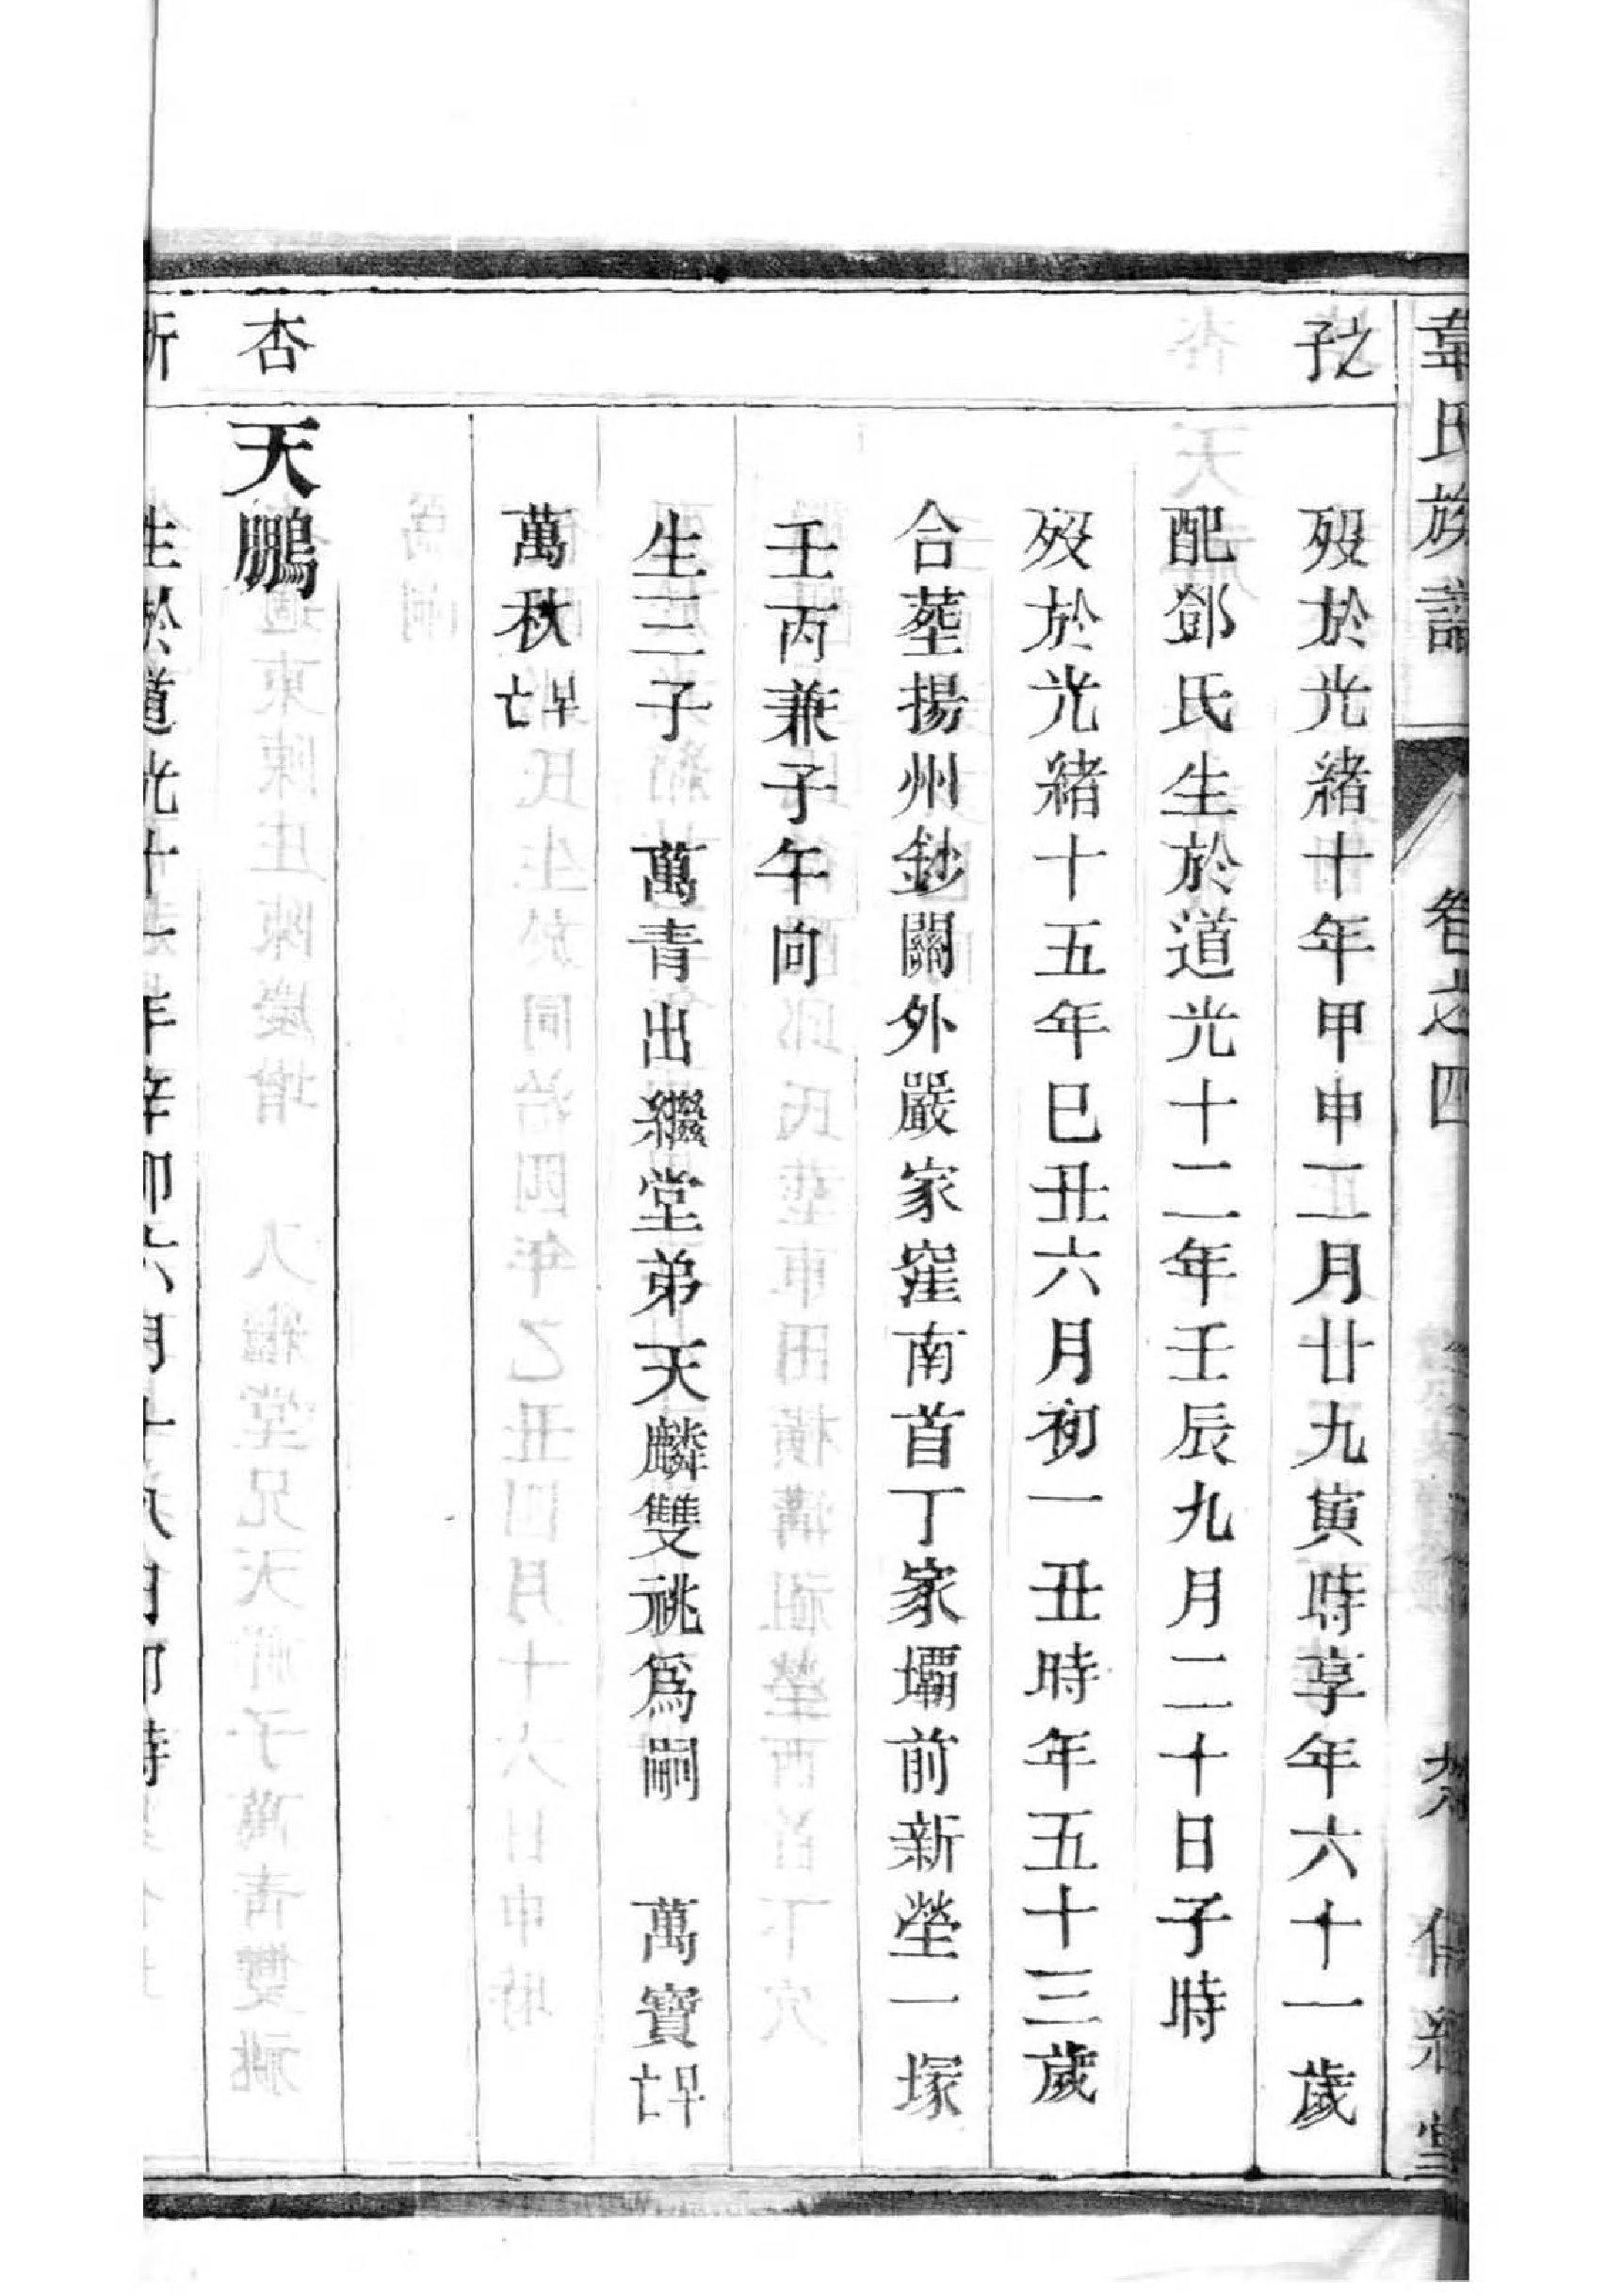 韋氏族譜 卷之四
之子
歿於光緒十年甲申正月廿九寅時享年六十一歲
配鄧氏生於道光十二年壬辰九月二十日子時
歿於光緒十五年巳丑六月初一丑時年五十三歲
合塟揚州鈔關外嚴家窪南首丁家壩前新塋一塚
壬丙兼子午向
生三子 萬青出繼堂弟天麟雙祧爲嗣 萬寶早亡
萬秋早亡
杏 天鵬
生於道光十一年辛卯六月十八日卯時